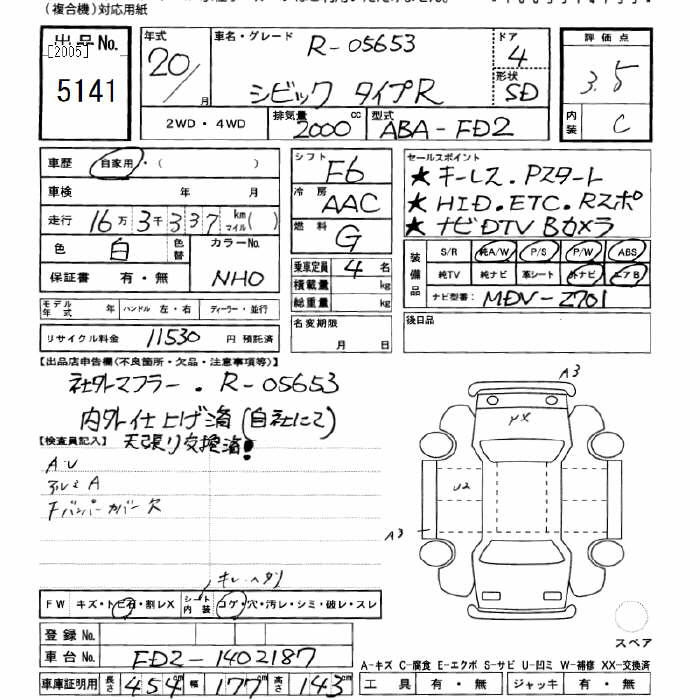 (複合機)対応用紙
出品No.
[2005]
5141
年式 20/月
車名・グレード R-05653
シビック タイプR
ドア 4
形状 SD
2WD・4WD
排気量 2000 cc
型式 ABA-FD2
評価点 3.5
内装 C
車歴 自家用・( )
車検 年 月
走行 16万3千337 km マイル( )
色 白 色替 カラーNo. NHO
保証書 有・無
シフト F6
冷房 AAC
燃料 G
乗車定員 4 名
積載量 kg
総重量 kg
セールスポイント
★キーレス.Pスタート
★HID.ETC.Rスポ
★ナビDTV Bカメラ
装備品 S/R 純A/W P/S P/W ABS
純TV 純ナビ 革シート 外ナビ エアB
ナビ型番: MDV-Z701
モデル年式 年 ハンドル 左・右 ディーラー・並行
リサイクル料金 11530 円 預託済
名変期限 月 日
後日品
【出品店申告欄(不良箇所・欠品・注意事項等)】
社外マフラー.R-05653
内外仕上げ済(自社にて)
【検査員記入】 天張り交換済!
A.U
アルミA
Fバンパーカバー欠
A3
U2
A3
キレ.ヘタリ
FW キズ・トビ石・割レX シート内装 コゲ・穴・汚レ・シミ・破レ・スレ
登録No.
車台No. FD2-1402187
車庫証明用 長さ 454 cm 幅 177 cm 高さ 143 cm
スペア
A-キズ C-腐食 E-エクボ S-サビ U-凹ミ W-補修 XX-交換済
工具 有・無 ジャッキ 有・無